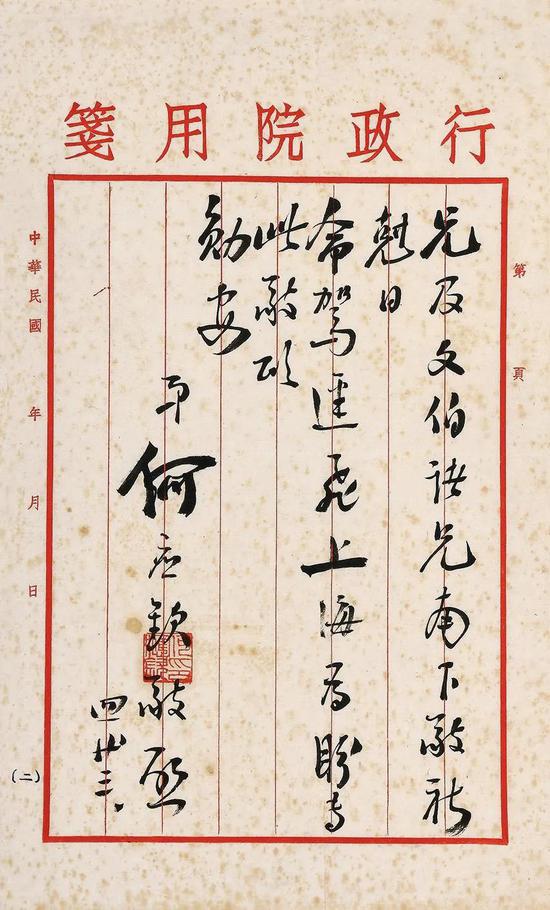 行政院用箋
第 頁
兄及文伯諸兄南下敬祈
尅日
命駕逕飛上海為盼專
此敬頌
勛安
弟何應欽敬啟
四廿三、
中華民國 年 月 日
(二)